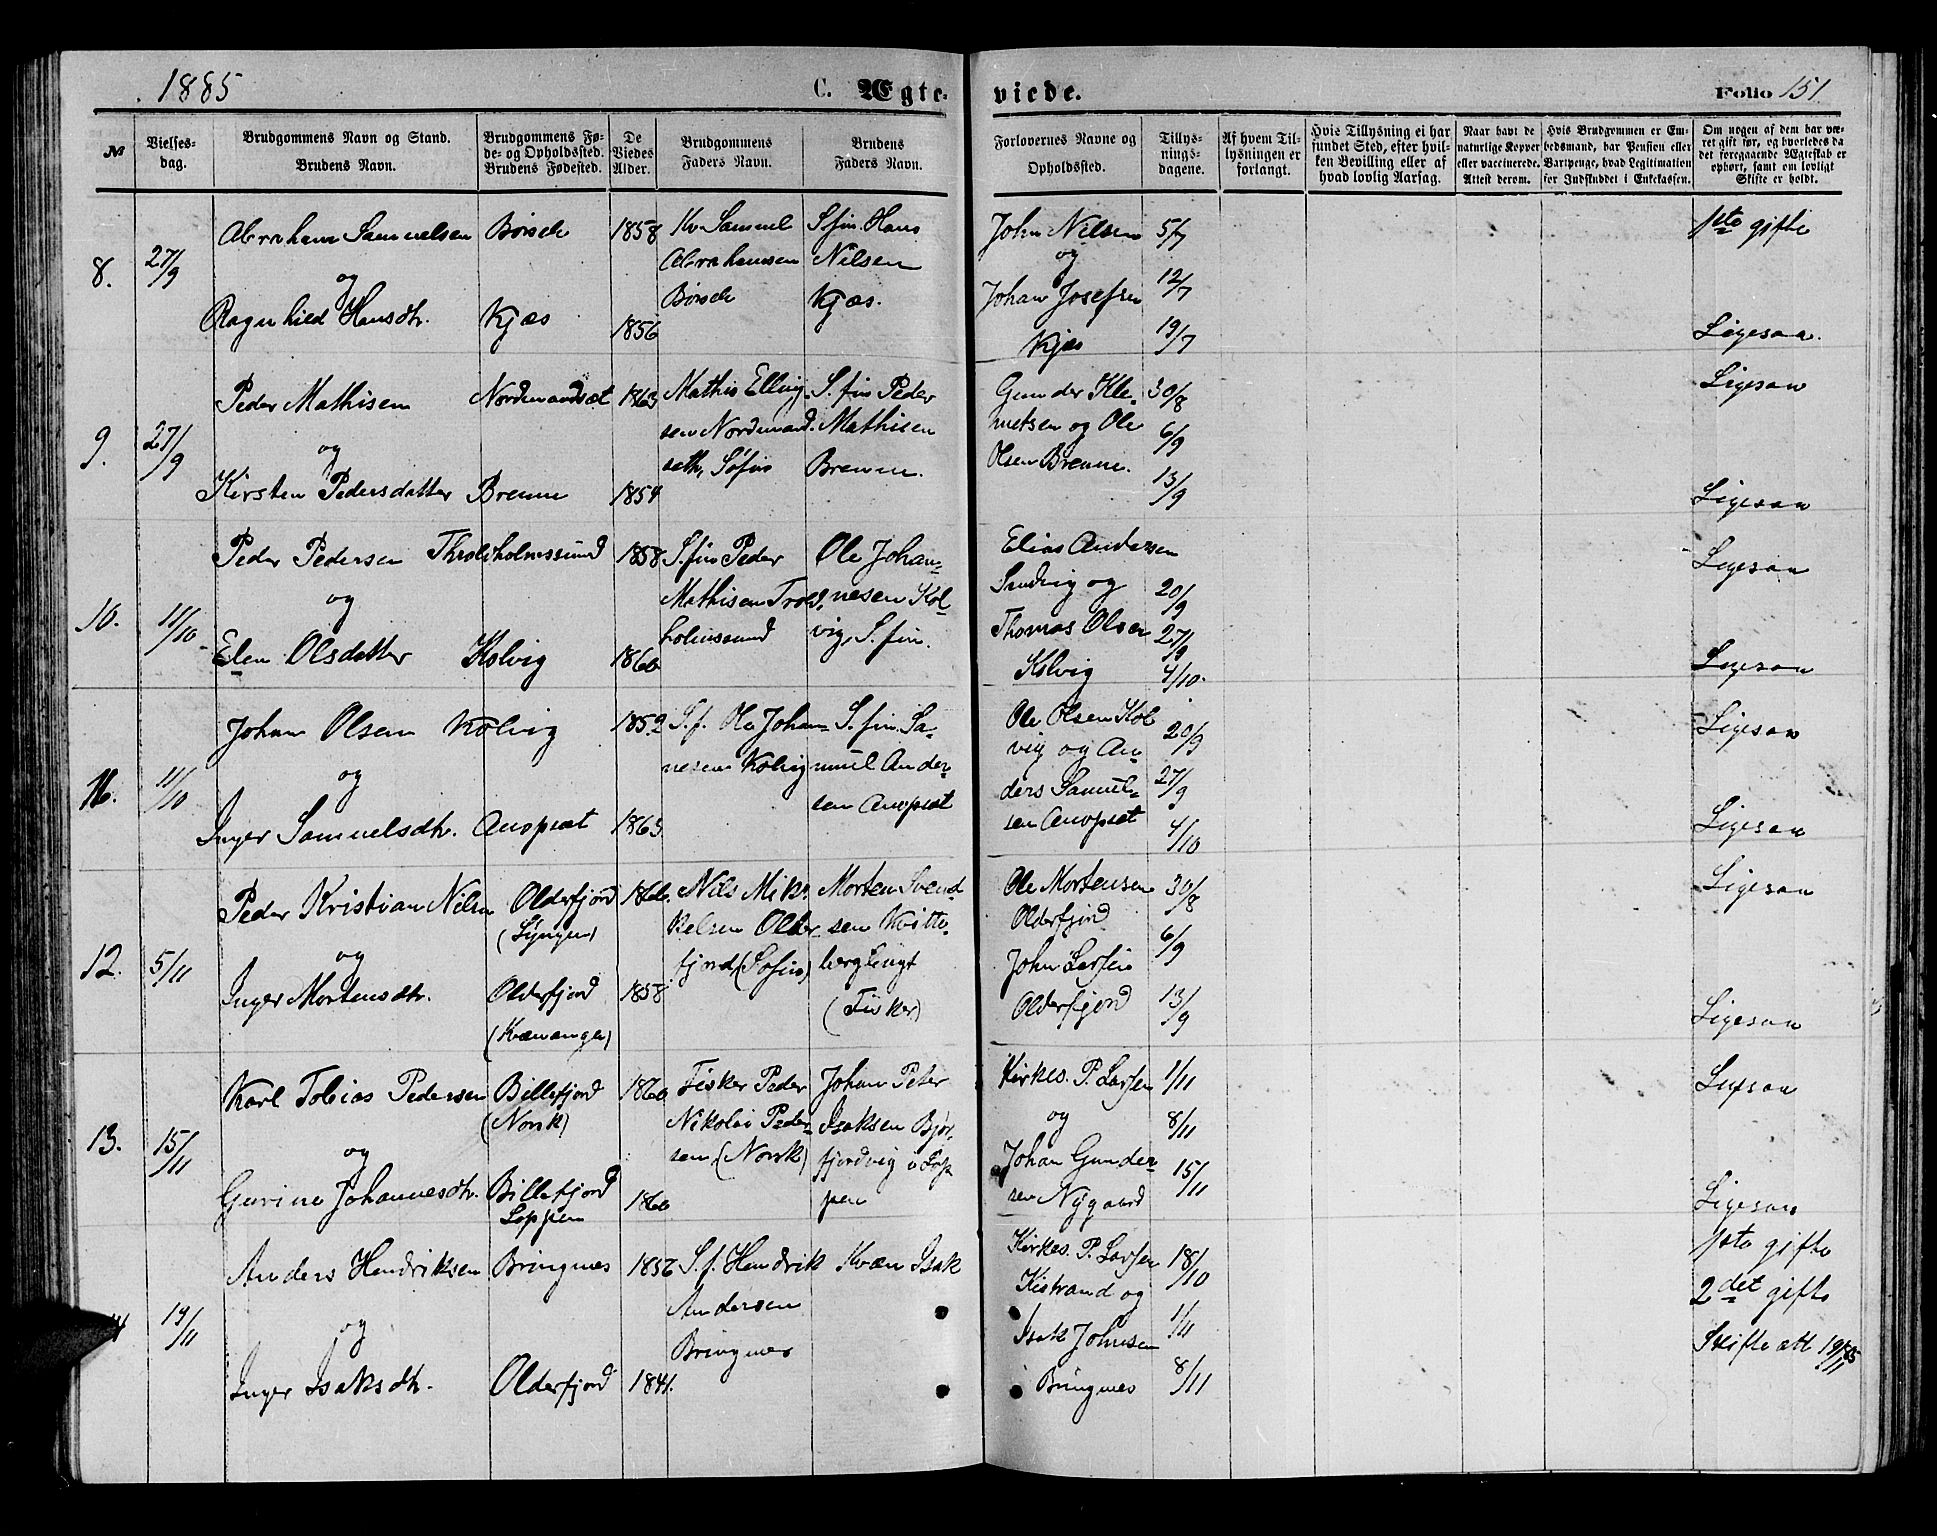 1885
C. Ægteviede.
Folio 151.
№
Vielsesdag.
Brudgommens Navn og Stand.
Brudens Navn.
Brudgommens Føde- og Opholdssted.
Brudens Fødested.
De Viedes Alder.
Brudgommens Faders Navn.
Brudens Faders Navn.
Forlovernes Navne og Opholdssted.
Tillysningsdagene.
Af hvem Tillysningen er forlangt.
Hvis Tillysning ei har fundet Sted, efter hvilken Bevilling eller af hvad lovlig Aarsag.
Naar havt de naturlige Kopper eller vaccinerede. Attest derom.
Hvis Brudgommen er Embedsmand, har Pension eller Vartpenge, hvad Legitimation for Indskuddet i Enkekassen.
Om nogen af dem har været gift før, og hvorledes da det foregaaende Ægteskab er ophørt, samt om lovligt Skifte er holdt.
8.
27/9
Abraham Samuelsen
og
Ragnhild Hansdtr.
Børsele
Kjæs
1858
1856
Kv Samuel
Abrahamsen
S.fin Hans
Nilsen
Kjæs.
John Nilsen
og
Johan Josefsen
Kjæs
5/7
12/7
19/7
1ste gifte
Ligesaa.
9.
27/9
Peder Mathisen
og
Kirsten Pedersdatter
Nordmandsæt
Brenne
1863
1859
Mathis Elling-
sen Nordmand-
seth, Søfin
S.fin Peder
Mathisen
Brenne.
Gunder Kle-
metsen og Ole
Olsen Brenne.
30/8
6/9
13/9
Ligesaa
Ligesaa
10.
11/10
Peder Pedersen
og
Elen Olsdatter
Throldholmssund
Kolvig
1858
1860
S.fin Peder
Mathisen Trold-
holmssund
Ole Johan-
nesen Kol-
vig, S.fin.
Elias Andersen
Sandvig og
Thomas Olsen
Kolvig
20/9
27/9
4/10
Ligesaa
Ligesaa
11.
11/10
Johan Olsen
og
Inger Samuelsdtr.
Kolvig
Anopset
1859
1863
S.f. Ole Johan-
nesen Kolvig
S.fin Sa-
muel Ander-
sen Anopset
Ole Olsen Kol
vig og An-
ders Samuel-
sen Anopset
20/9
27/9
4/10
Ligesaa
Ligesaa
12.
5/11
Peder Kristian Nilsen
og
Inger Mortensdtr.
Olderfjord
(Lyngen)
Olderfjord
(Kvænangen)
1860.
1858
Nils Mik-
kelsen Older-
fjord, (Søfin)
Morten Svend-
sen Kvitte-
berglingt
(Fisker)
Ole Mortensen
Olderfjord
John Larsen
Olderfjord
30/8
6/9
13/9
Ligesaa
Ligesaa
13.
15/11
Karl Tobias Pedersen
og
Gurine Johannesdtr.
Billefjord
(Norsk)
Billefjord
Loppen
1860
1860
Fisker Peder
Nikolai Peder-
sen, (Norsk)
Johan Peter
Isaksen Bjør-
fjordvig i Lop
pen
Kirkes. P. Larsen
og
Johan Gunder-
sen Nygaard
1/11
8/11
15/11
Ligesaa
Ligesaa
19/11
Anders Hendriksen
og
Inger Isaksdtr.
Bringnes
Olderfjord
1856
1841.
S.f. Hendrik
Andersen
Bringnes
Kvæn Isak
Kirkes. P. Larsen
Kistrand og
Isak Johnsen
Bringnes
18/10
1/11
8/11
1ste gifte
2det gifte
Skifte att 19/11 85